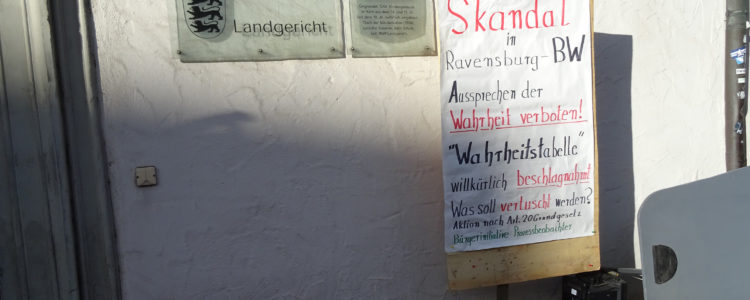 Landgericht
Skandal
in
Ravensburg-BW
Aussprechen der
Wahrheit verboten!
"Wahrheitstabelle"
willkürlich beschlagnahmt
Was soll vertuscht werden?
Aktion nach Art. 20 Grundgesetz
Bürgerinitiative Prozessbeobachter